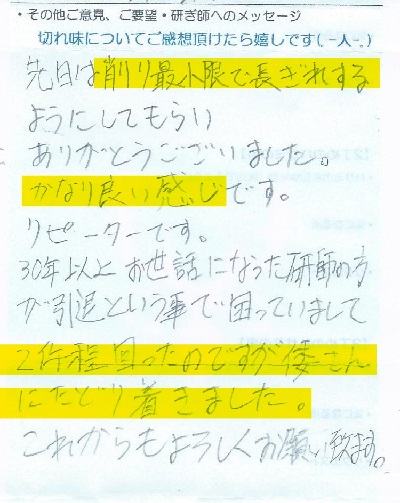 ・その他ご意見、ご要望・研ぎ師へのメッセージ
切れ味についてご感想頂けたら嬉しです(-人-.)
先日は削り最小限で長ぎれする
ようにしてもらい
ありがとうございました。
かなり良い感じです。
リピーターです。
30年以上お世話になった研師の方
が引退という事で困っていまして
2件程回ったのですが倭さん
にたどり着きました。
これからもよろしくお願い致ます。